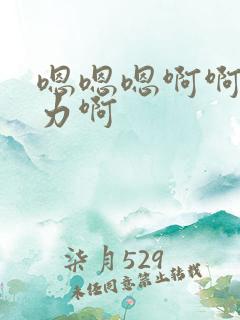 嗯嗯嗯啊啊
力啊
柒月529
未经同意禁止转载